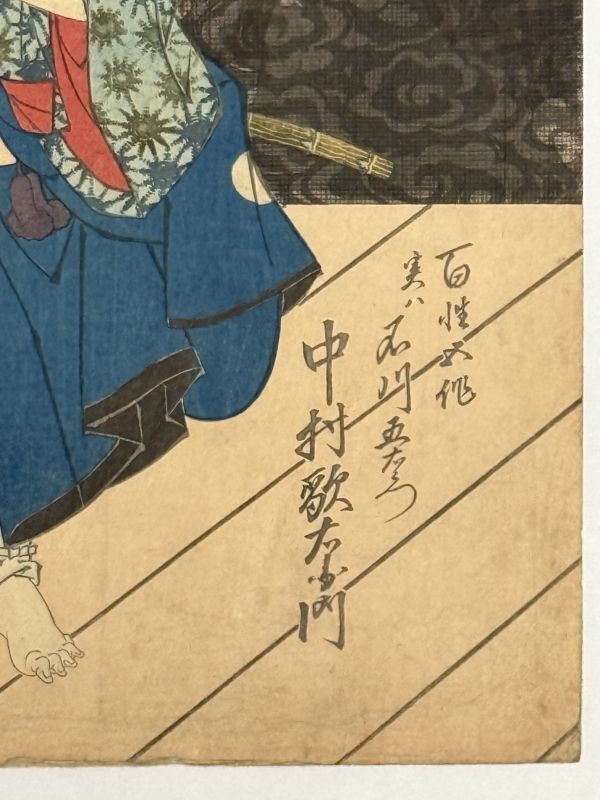 百性五作
実ハ石川五右衛門
中村歌右衛門